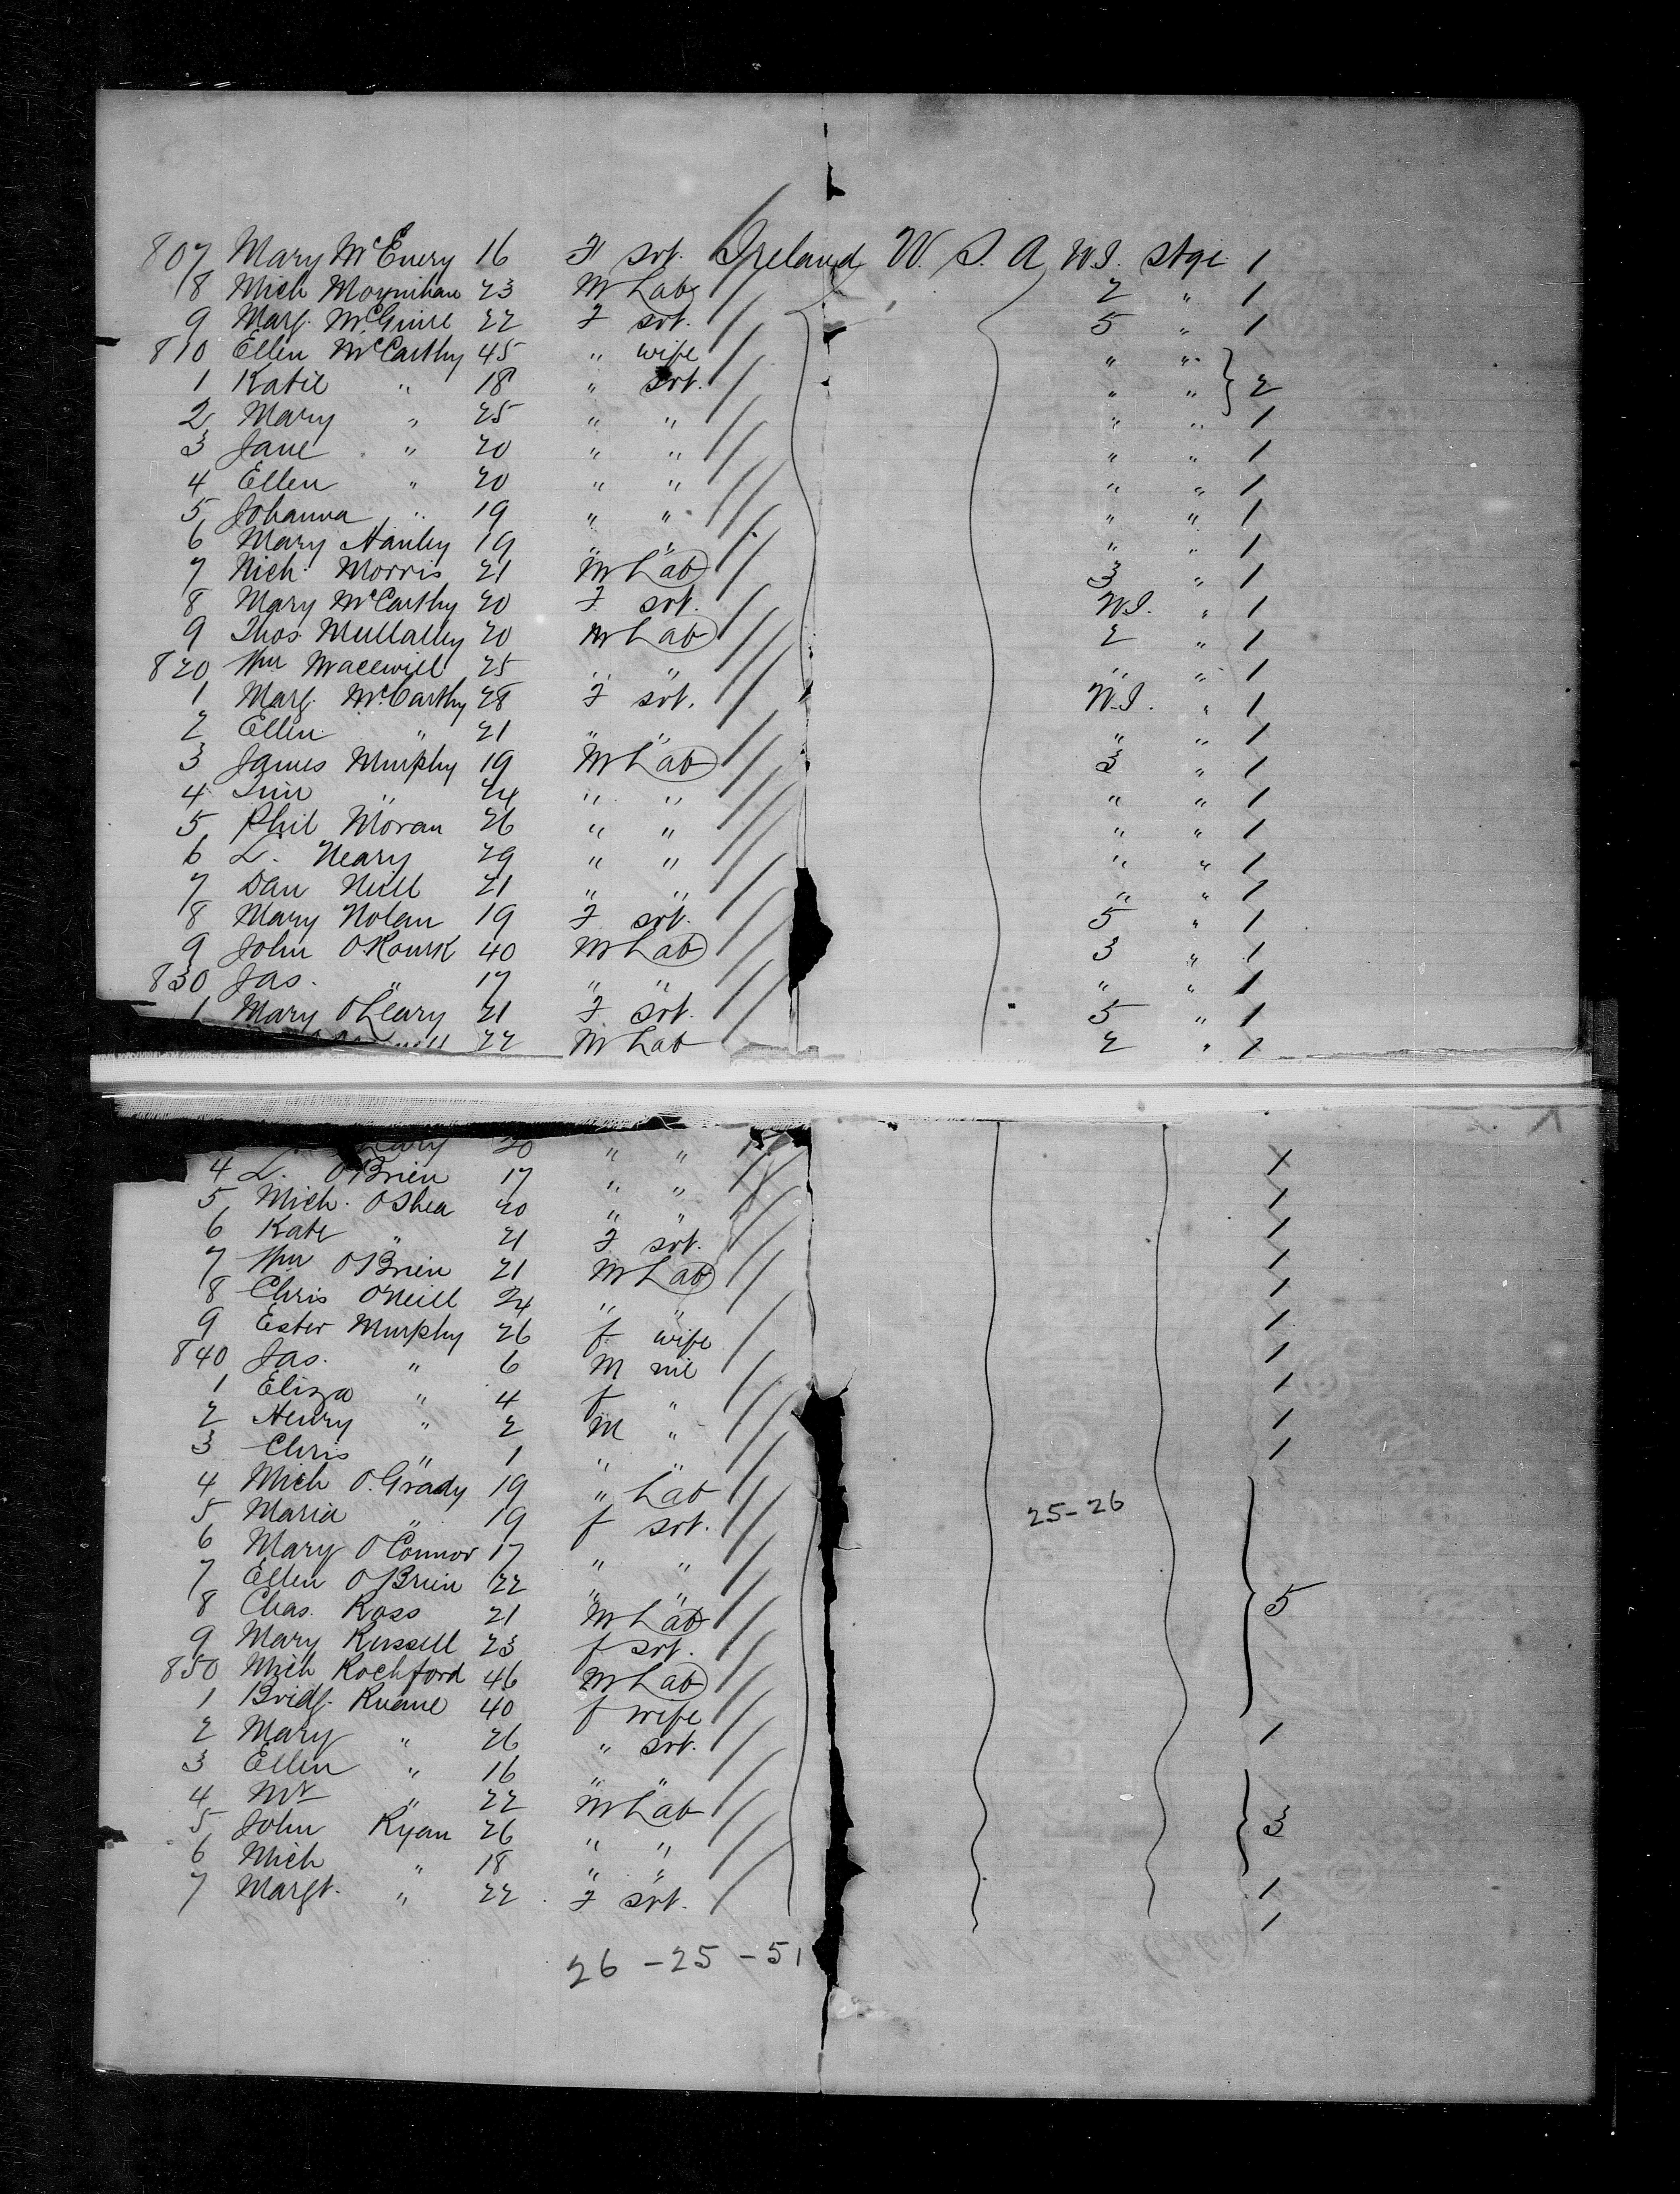 807 Mary McEnery 16 F svt. Ireland U. S. A W.S. Stge 1
8 Mich Moynihan 23 M Lab 2 " 1
9 Marg. McGuire 22 F svt. 5 " 1
810 Ellen McCarthy 45 " wife " "
1 Katie " 18 " svt. " " } 2
2 Mary " 25 " " " " 1
3 Jane " 20 " " " " 1
4 Ellen " 20 " " " " 1
5 Johanna " 19 " " " " 1
6 Mary Hanley 19 " " " " 1
7 Mich. Morris 21 M Lab 3 " 1
8 Mary McCarthy 20 F svt. W.S. " 1
9 Thos Mullalley 20 M Lab 2 " 1
820 Wm 25 " " " " 1
1 Marg. McCarthy 28 F svt. W.S. " 1
2 Ellen " 21 " " " " 1
3 James Murphy 19 M Lab 3 " 1
4 Tim " 24 " " " " 1
5 Phil Moran 26 " " " " 1
6 L. Neary 29 " " " " 1
7 Dan Neill 21 " " " " 1
8 Mary Nolan 19 F svt. 5 " 1
9 John O'Rourk 40 M Lab 3 " 1
830 Jas. " 17 " " " " 1
1 Mary O'Leary 21 F svt. 5 " 1
22 M Lab 2 " 1
20 " "
4 L. O'Brien 17 " " 1
5 Mich. O'Shea 20 " " 1
6 Kate " 21 F svt. 1
7 Wm O'Brien 21 M Lab 1
8 Chris O'Neill 24 " " 1
9 Ester Murphy 26 f wife 1
840 Jas. " 6 M nil 1
1 Eliza " 4 f " 1
2 Henry " 2 M " 1
3 Chris " 1 " " 1
4 Mich O'Grady 19 " Lab
5 Maria " 19 f svt. 25-26
6 Mary O'Connor 17 " "
7 Ellen O'Brien 22 " " } 5
8 Chas. Ross 21 M Lab
9 Mary Russell 23 f svt.
850 Mich Rochford 46 M Lab
1 Bridg. Ruane 40 f wife
2 Mary " 26 " svt. 1
3 Ellen " 16 " "
4 Mt " 22 M Lab
5 John Ryan 26 " " } 3
6 Mich " 18 " "
7 Margt. " 22 F svt. 1
1
26 - 25 - 51